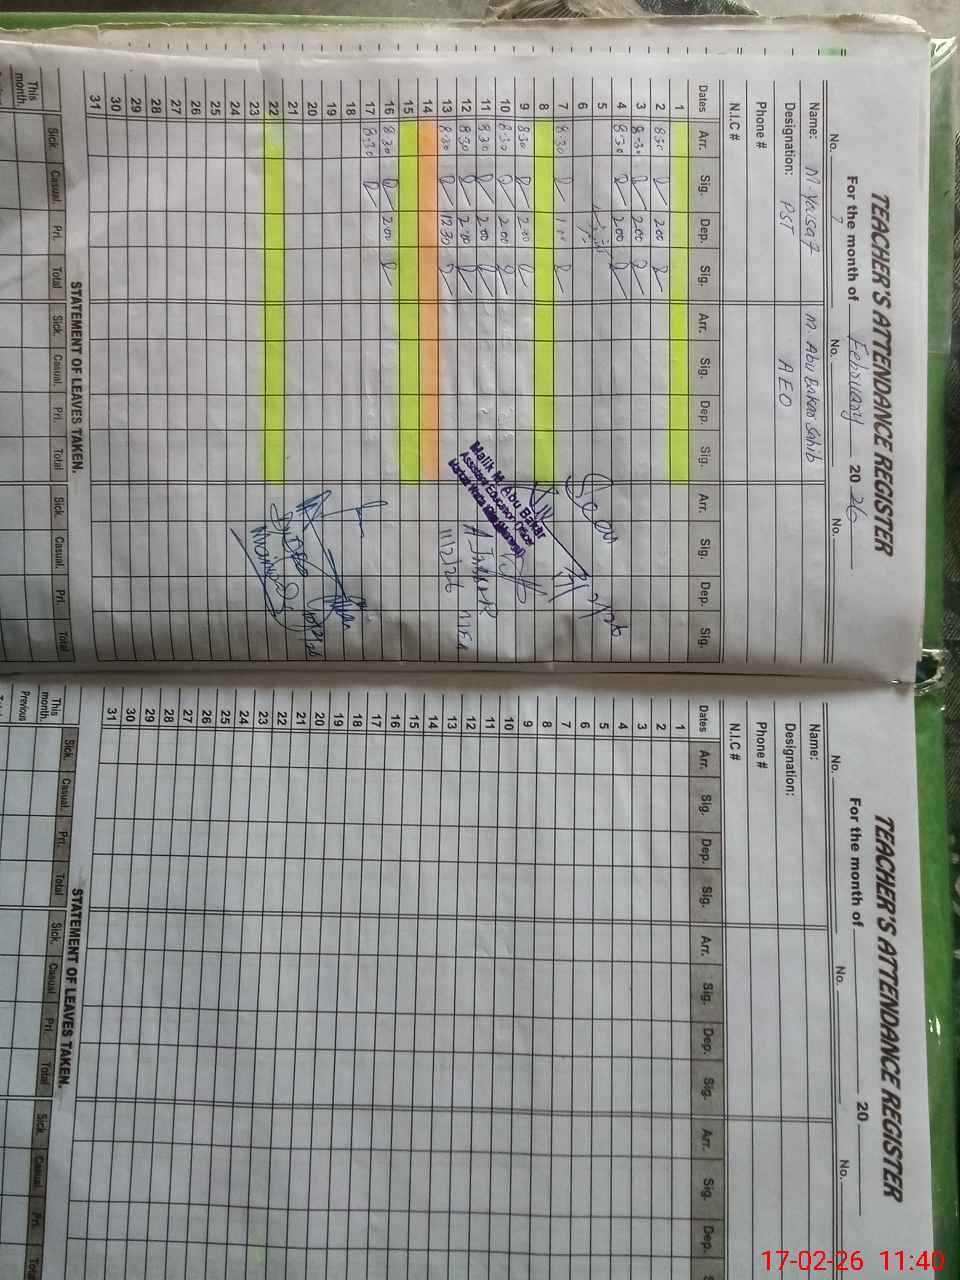 TEACHER'S ATTENDANCE REGISTER
For the month of February 20 26
No. 7 No. No.
Name: M Abu Bakar Sahib
Designation: PST AEO
Phone #
N.I.C #
Dates Arr. Sig. Dep. Sig. Arr. Sig. Dep. Sig. Arr. Sig. Dep. Sig.
1
2 8:30 2:00
3 8:30 2:00
4 8:30 2:00
5
6
7 8:30
8
9 8:30 2:00
10 8:30 2:00
11 8:30 2:00
12 8:30 2:00
13 8:30 12:30
14
15
16 8:30 2:00
17 8:30
18
19
20
21
22
23
24
25
26
27
28
29
30
31
Seen
Malik M. Abu Bakar
Assistant Education Officer
11/2/26
STATEMENT OF LEAVES TAKEN.
Sick. Casual. Pri. Total Sick. Casual. Pri. Total Sick. Casual. Pri. Total
This month.
TEACHER'S ATTENDANCE REGISTER
For the month of 20
No. No. No.
Name:
Designation:
Phone #
N.I.C #
Dates Arr. Sig. Dep. Sig. Arr. Sig. Dep. Sig. Arr. Sig. Dep.
1
2
3
4
5
6
7
8
9
10
11
12
13
14
15
16
17
18
19
20
21
22
23
24
25
26
27
28
29
30
31
STATEMENT OF LEAVES TAKEN.
Sick. Casual. Pri. Total Sick. Casual. Pri. Total Sick. Casual. Pri.
This month.
Previous
17-02-26 11:40